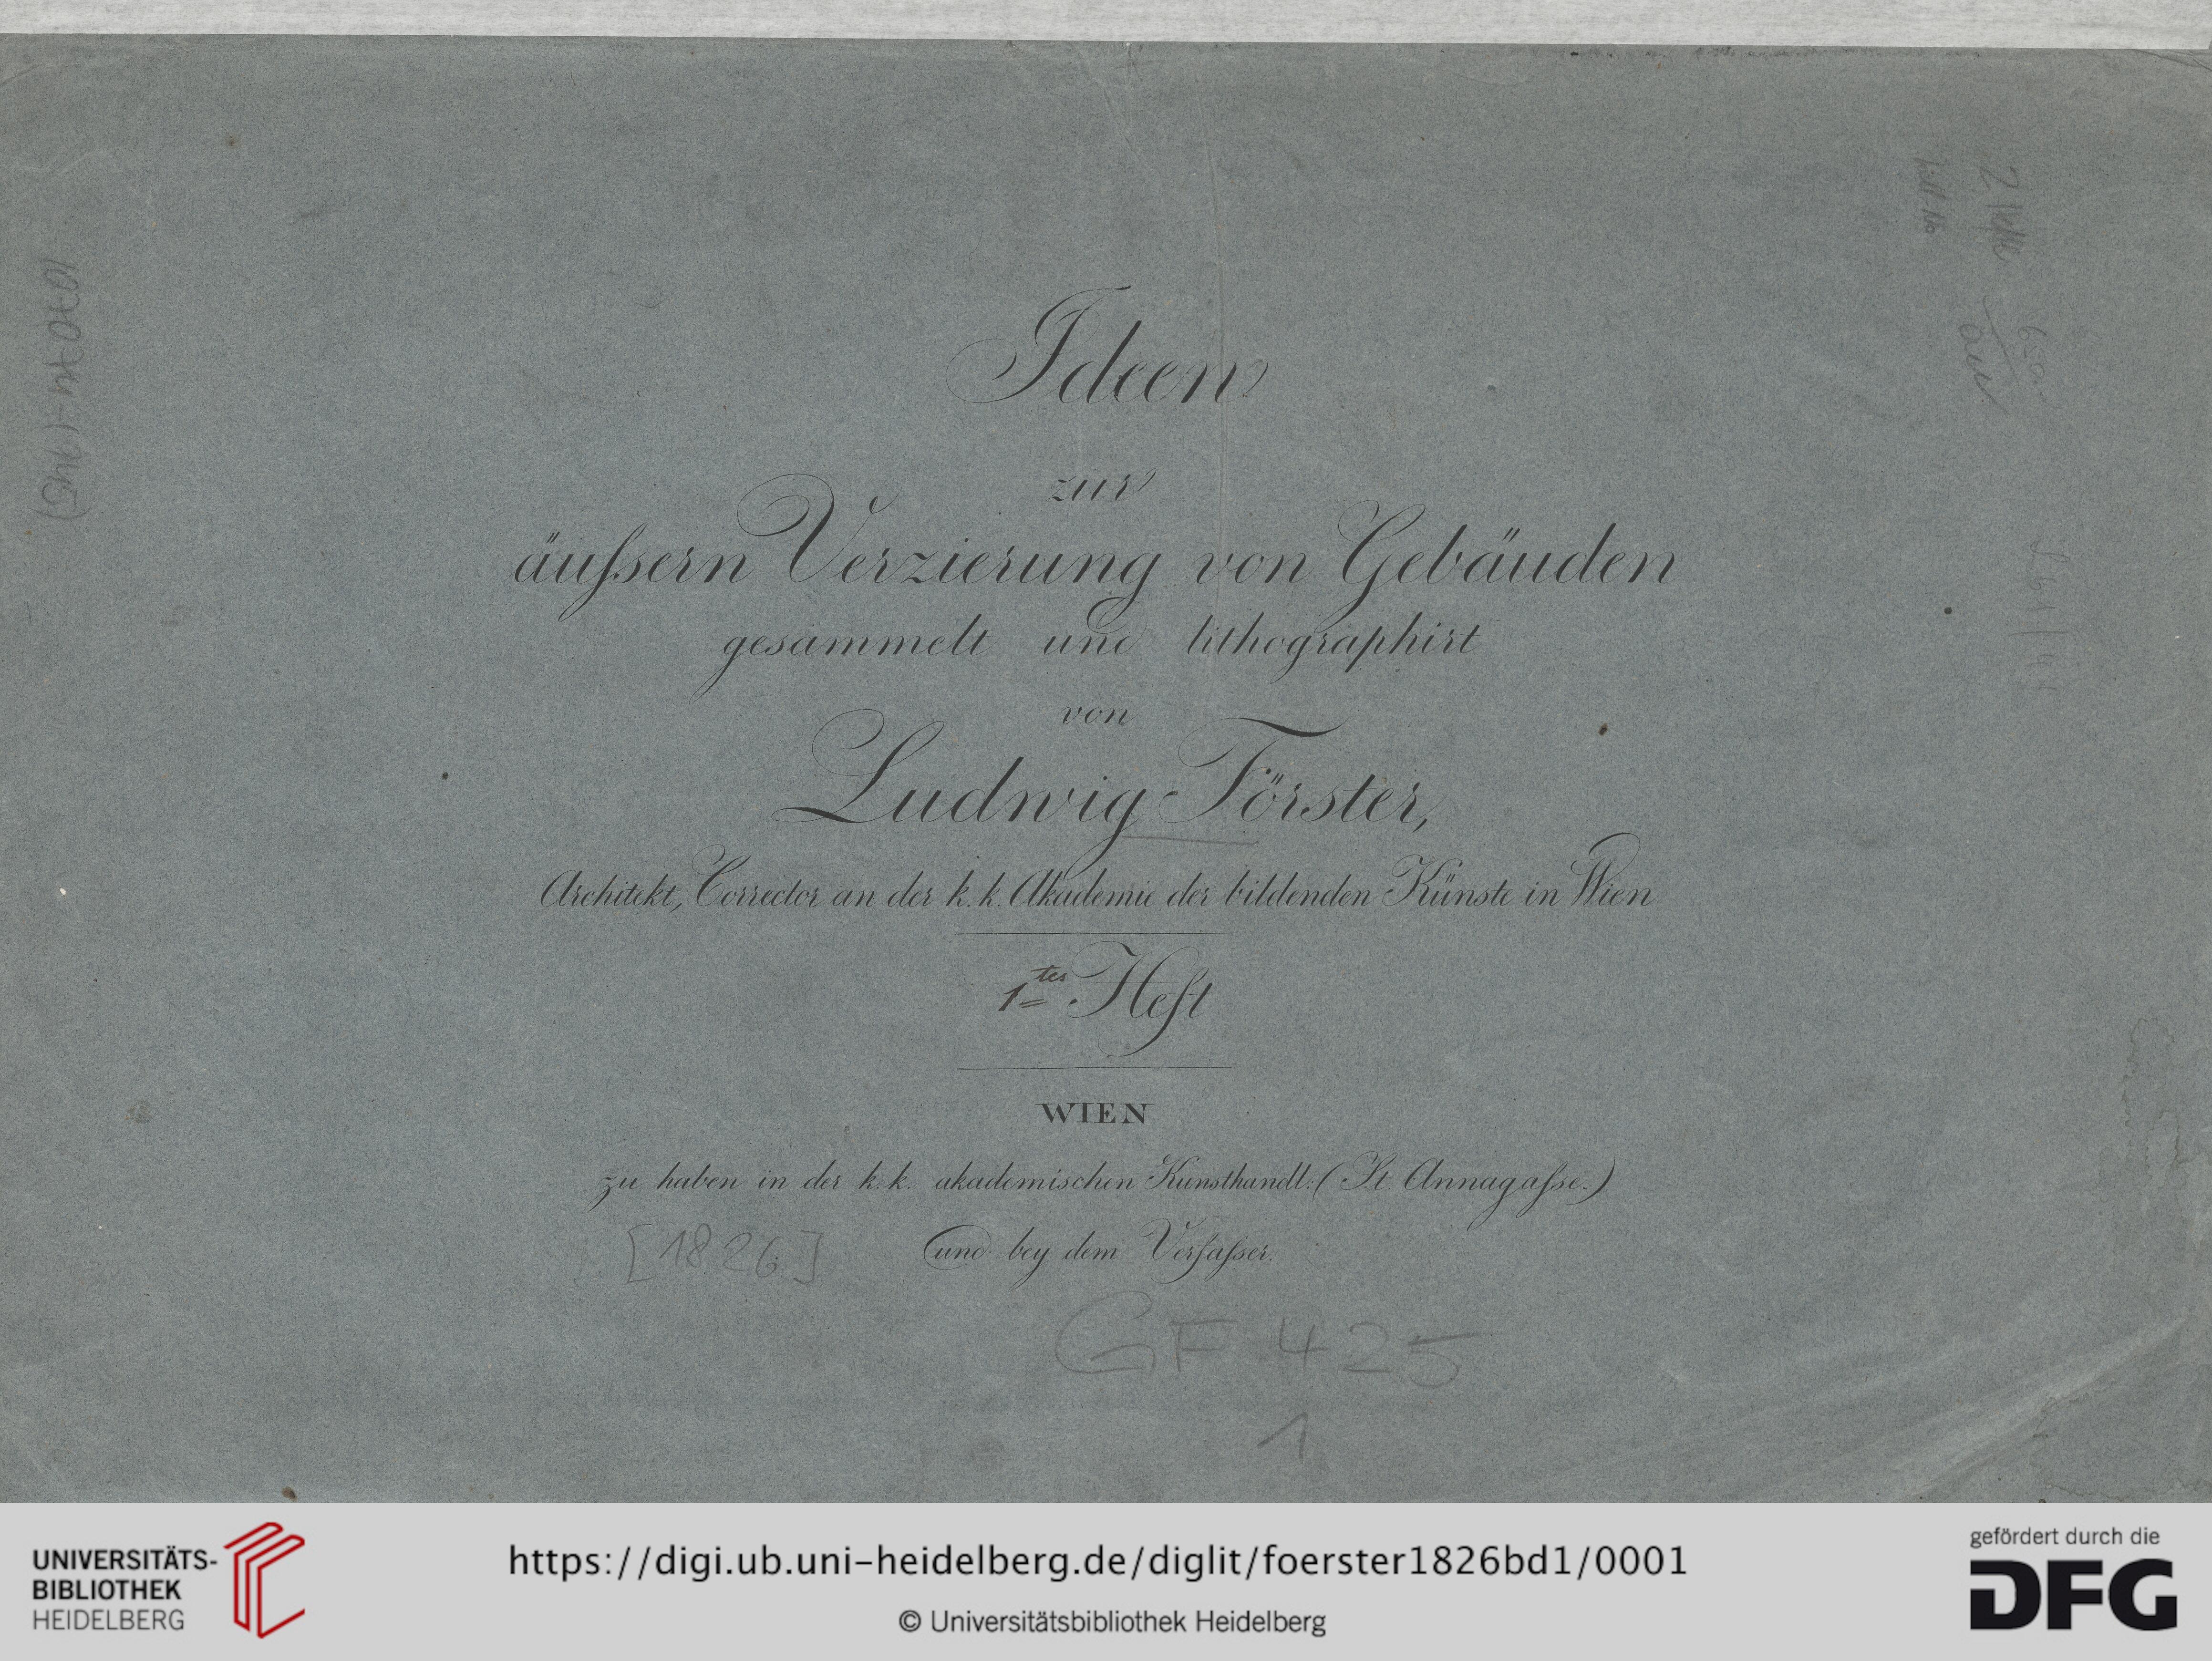 Ideen
zur
äußern Verzierung von Gebäuden
gesammelt und lithographirt
von
Ludwig Förster,
Architekt, Corrector an der k. k. Akademie der bildenden Künste in Wien
1tes Heft
WIEN
zu haben in der k. k. akademischen Kunsthandl: (St. Annagaſse.)
und bey dem Verfaſser.
[1826]
GF 425
1
UNIVERSITÄTS-
BIBLIOTHEK
HEIDELBERG
https://digi.ub.uni-heidelberg.de/diglit/foerster1826bd1/0001
© Universitätsbibliothek Heidelberg
gefördert durch die
DFG